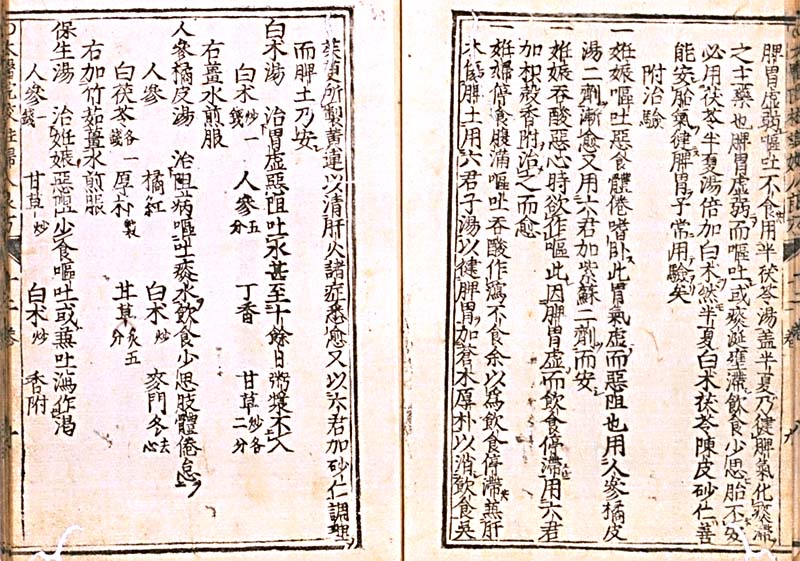 脾胃虚弱嘔吐不食用半茯苓湯盖半夏乃健脾氣化痰滯
之主藥也脾胃虚弱而嘔吐或痰涎壅滯飲食少思胎不安
必用茯苓半夏湯倍加白术然半夏白术茯苓陳皮砂仁善
能安胎氣健脾胃予常用驗矣
附治驗
一妊娠嘔吐惡食體倦嗜卧此胃氣虚而惡阻也用人參橘皮
湯二劑漸愈又用六君加紫蘇二劑而安
一妊娠吞酸惡心時欲作嘔此因脾胃虚而飲食停滯用六君
加枳殼香附治之而愈
一妊婦停食腹滿嘔吐吞酸作瀉不食余以爲飲食停滯兼肝
木傷脾土用六君子湯以健脾胃加蒼术厚朴以消飲食吳
茱萸所製黄連以清肝火諸症悉愈又以六君加砂仁調理
而脾土乃安
白术湯 治胃虚惡阻吐水甚至十餘日粥漿不入
白术炒一錢 人參五分 丁香 甘草炒各二分
右薑水煎服
人參橘皮湯 治阻病嘔吐痰水飲食少思肢體倦怠
人參 橘紅 白术炒 麥門冬去心
白茯苓各一錢 厚朴製 甘草炙五分
右加竹茹薑水煎服
保生湯 治妊娠惡阻少食嘔吐或兼吐瀉作渴
人參一錢 甘草炒 白术炒 香附